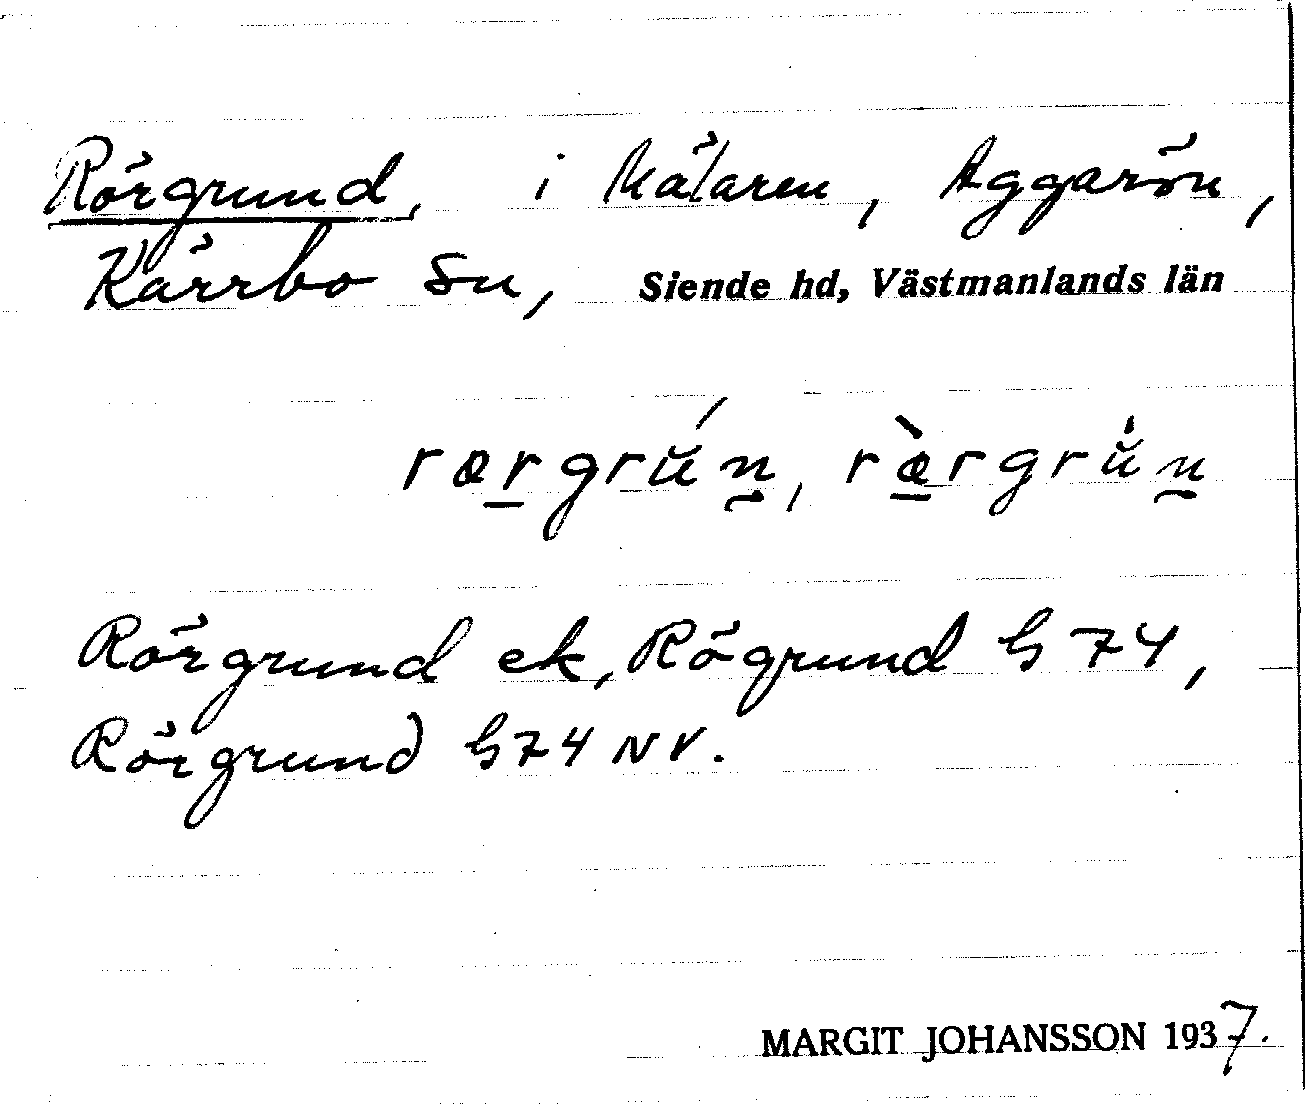 Rörgrund, i Mälaren, Aggarön,
Kärrbo sn, Siende hd, Västmanlands län
rœrgrŭ́n̰, rœ̀rgrŭ̍n̰
Rörgrund ek, Rögrund G 74,
Rörgrund G 74 NV.
MARGIT JOHANSSON 1937.